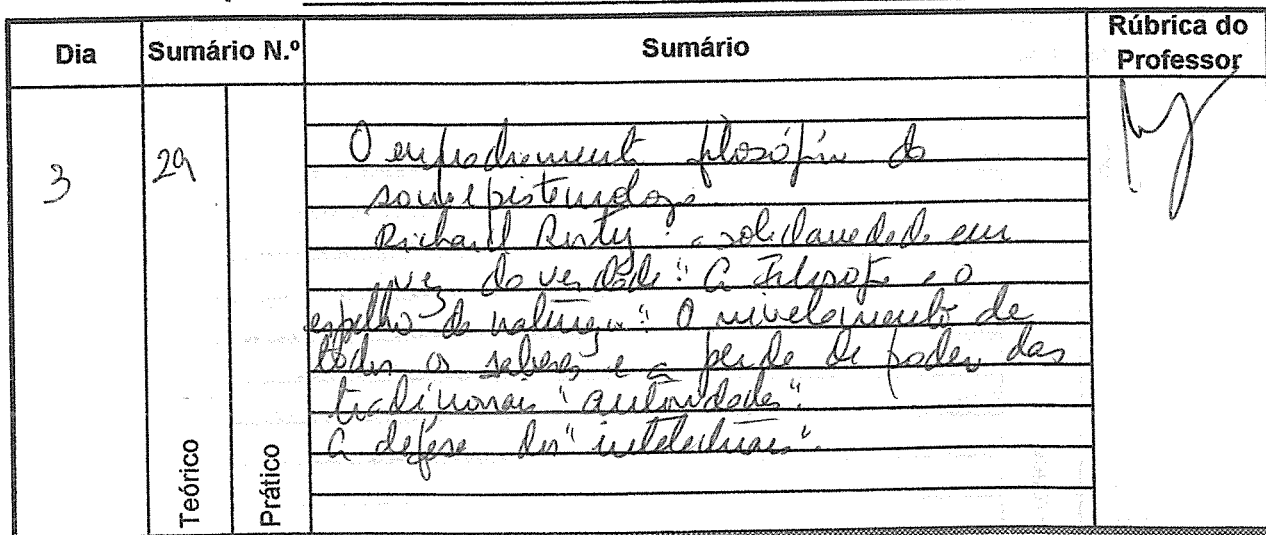 Dia
Sumário N.º
Sumário
Rúbrica do
Professor
3
29
Teórico
Prático
O enquadramento filosófico do
Richard Rorty: a solidariedade em
vez da verdade: "A Filosofia e o
espelho da natureza": O nivelamento de
todos os saberes e a perda de poder das
tradicionais "autoridades":
A defesa dos "intelectuais".